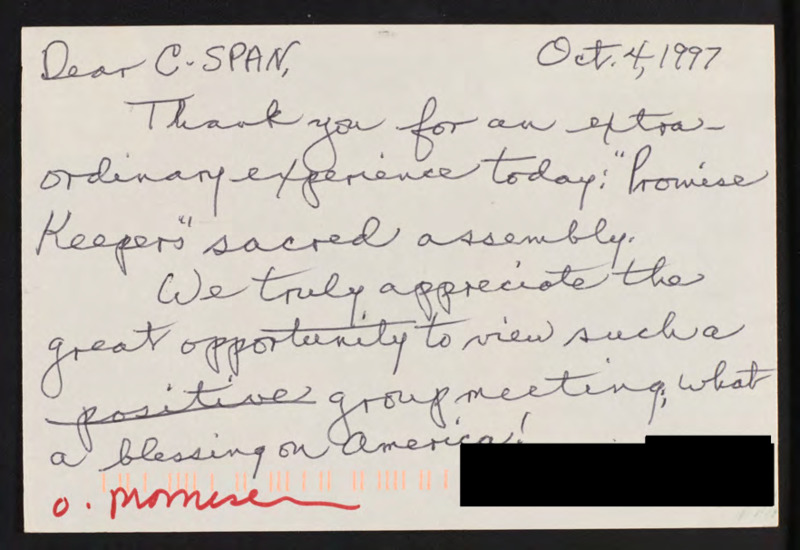 Dear C-SPAN, Oct. 4, 1997
Thank you for an extra-
ordinary experience today: "Promise
Keepers" sacred assembly.
We truly appreciate the
great opportunity to view such a
positive group meeting; what
a blessing on America!
o. promise